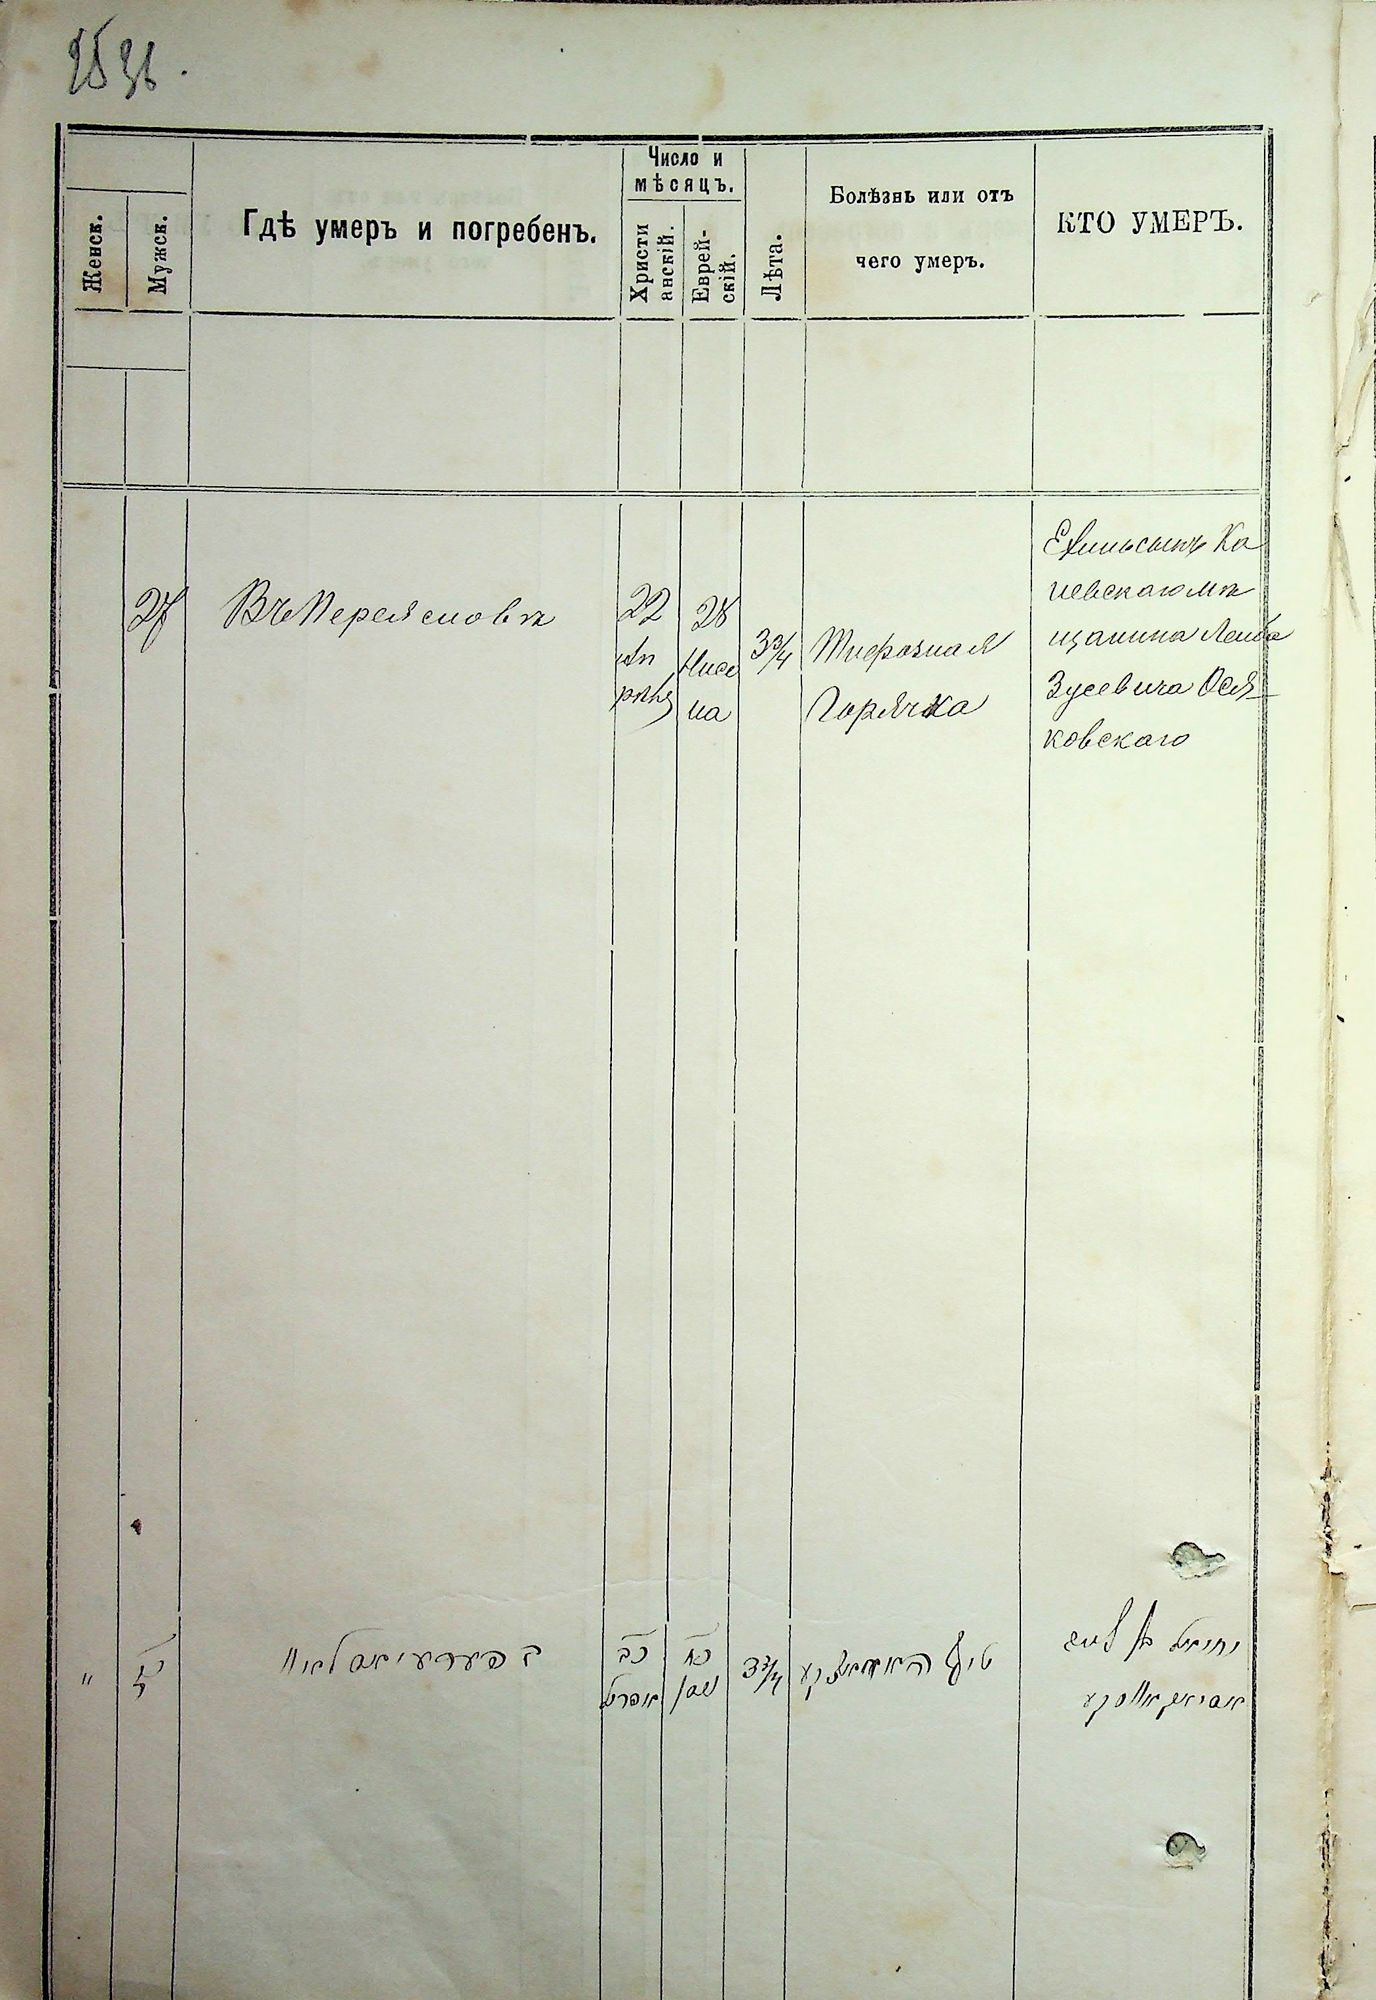 Женск.
Мужск.
Гдѣ умеръ и погребенъ.
Число и
мѣсяцъ.
Христи
анскій.
Еврей-
скій.
Лѣта.
Болѣзнь или отъ
чего умеръ.
КТО УМЕРЪ.
27
Въ Переяславѣ
22
Ап
рѣля
28
Ниса
на
3 3/4
Тифозная
Горячка
Ехиль сынъ Ка
невскаго мѣ
щанина Лейба
Зусевича Ося-
ковскаго
"
כז
כב
אפריל
כח
ניסן
3 3/4
יחיאל בן לייב